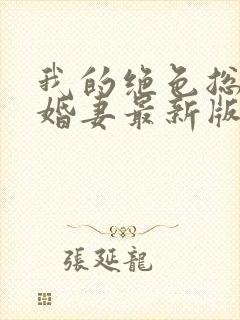 我的绝色总
婚妻最新版
張延龍